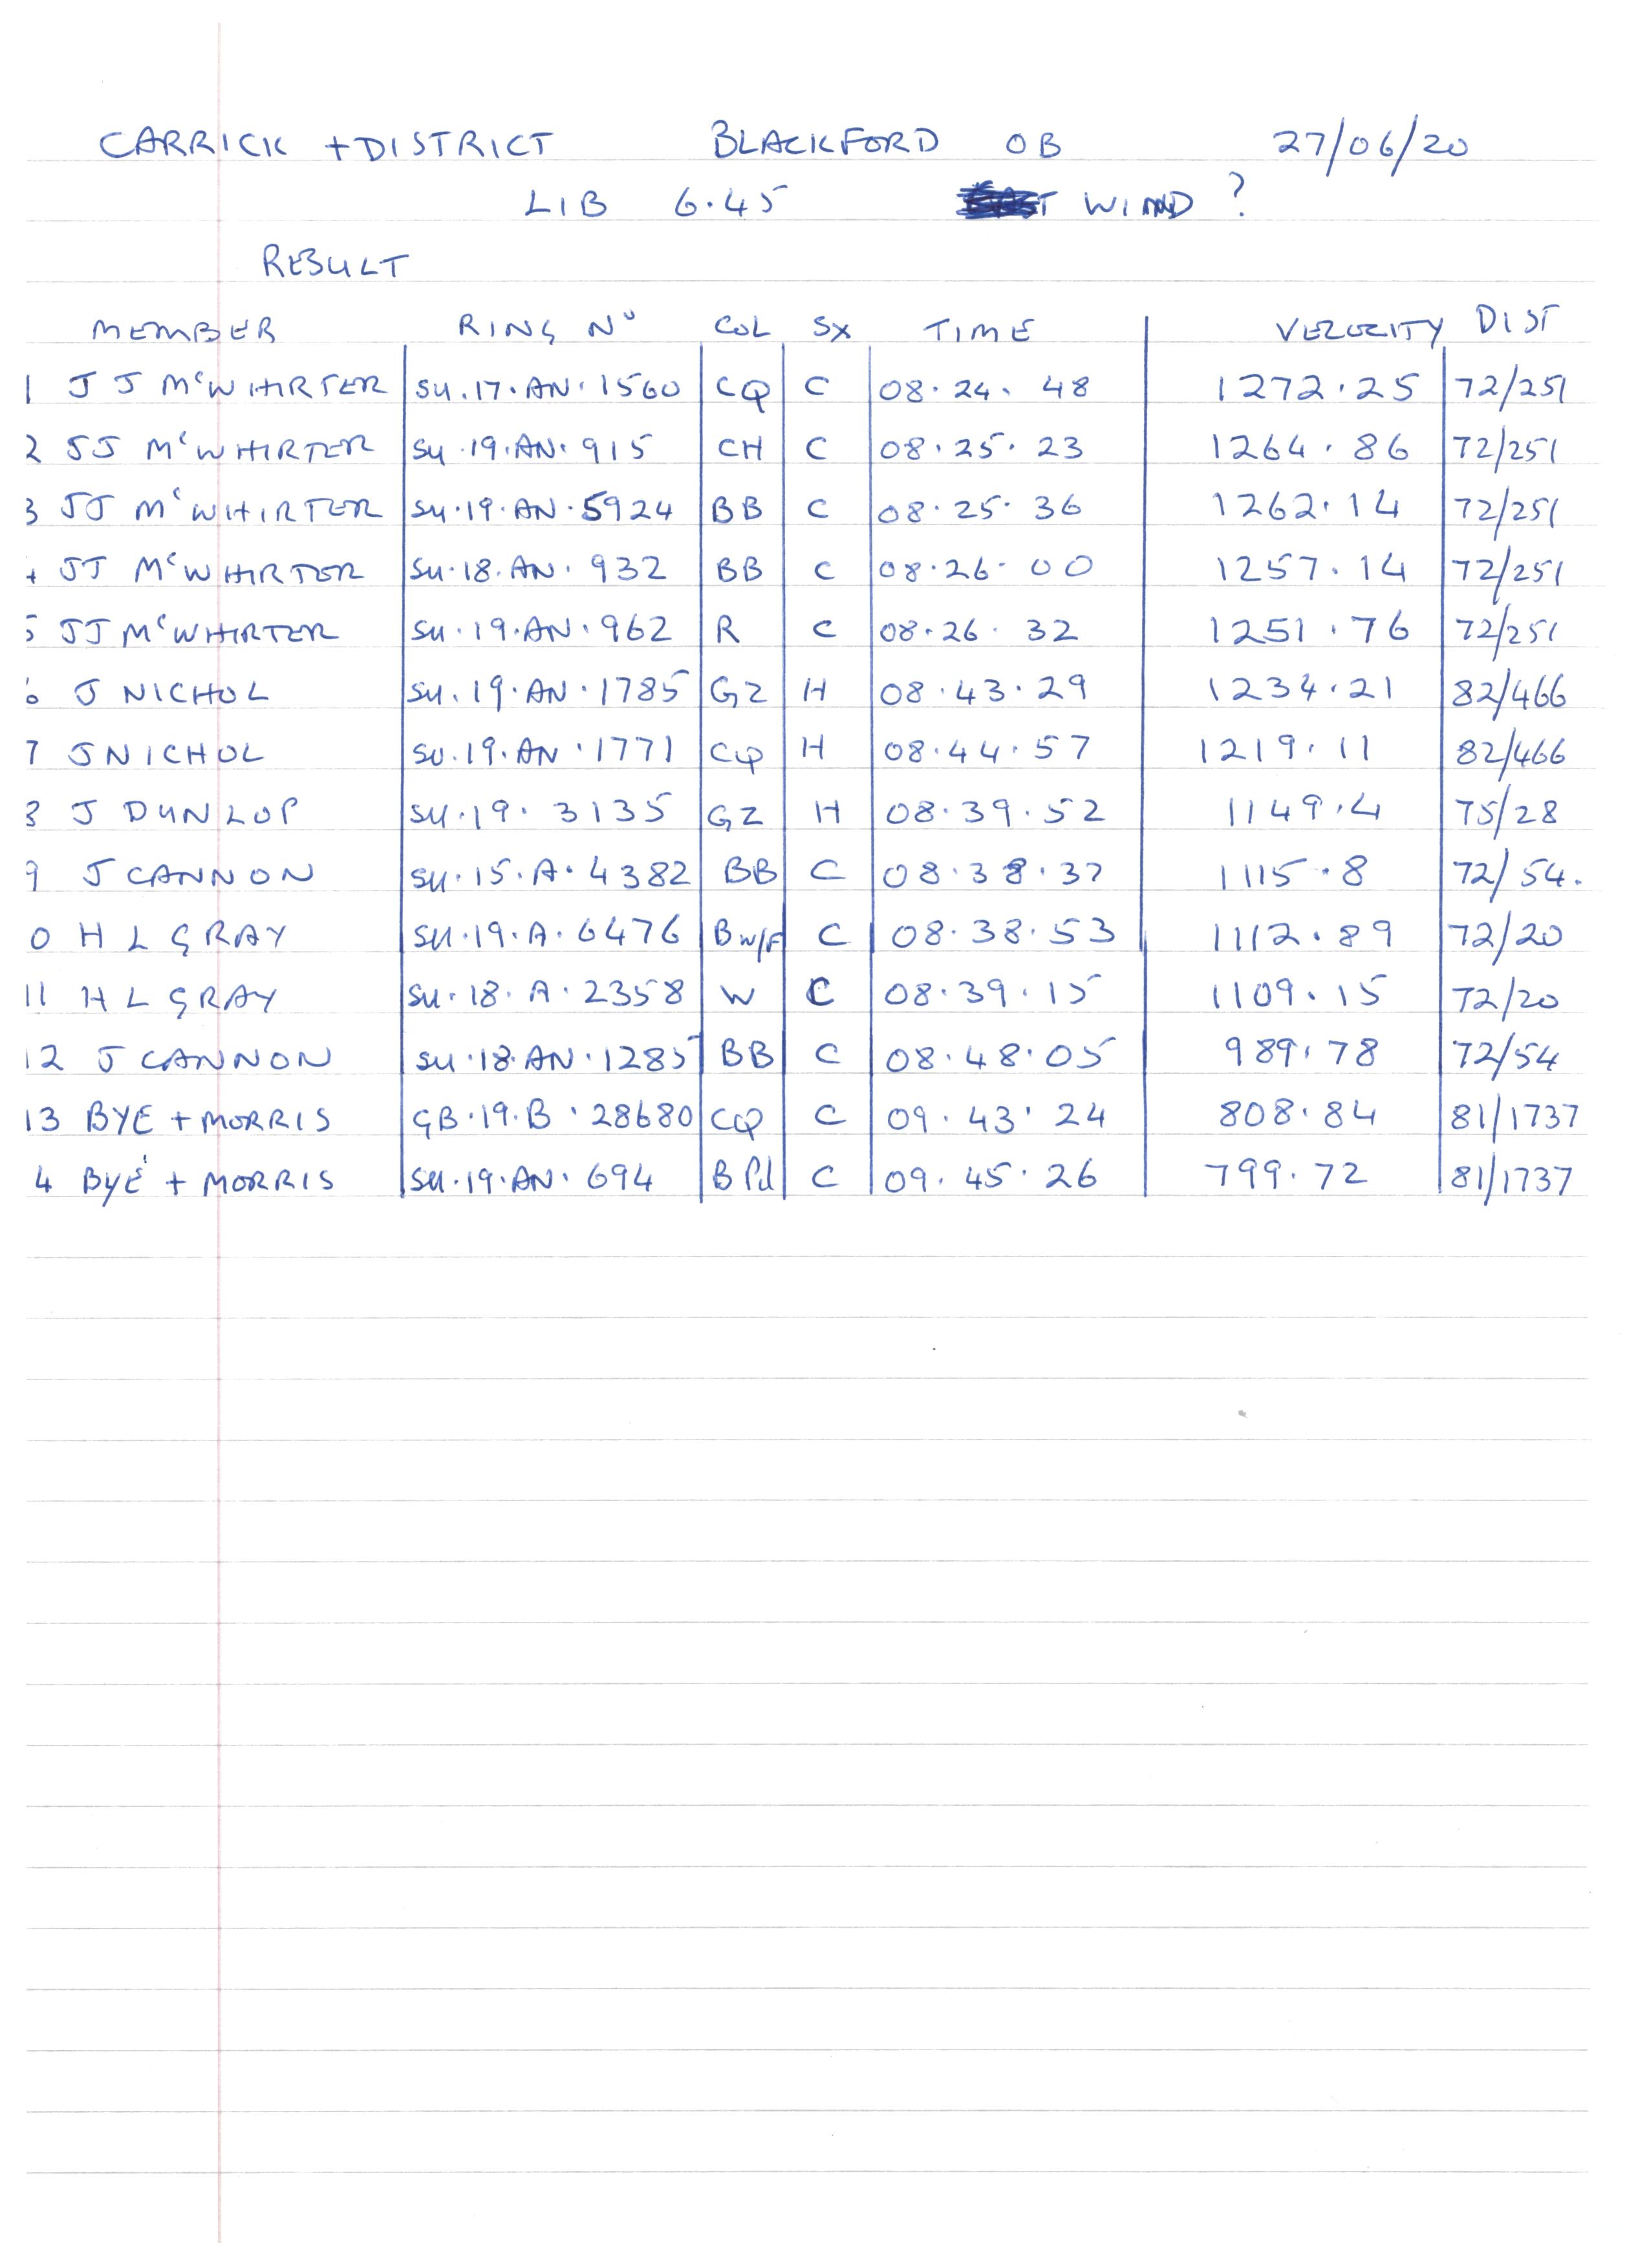 CARRICK + DISTRICT BLACKFORD OB 27/06/20
LIB 6.45 WIND ?
RESULT
MEMBER RING No COL SX TIME VELOCITY DIST
1 J J McWHIRTER SU.17.AN.1560 CQ C 08.24.48 1272.25 72/251
2 JJ McWHIRTER SU.19.AN.915 CH C 08.25.23 1264.86 72/251
3 JJ McWHIRTER SU.19.AN.5924 BB C 08.25.36 1262.14 72/251
4 JJ McWHIRTER SU.18.AN.932 BB C 08.26.00 1257.14 72/251
5 JJ McWHIRTER SU.19.AN.962 R C 08.26.32 1251.76 72/251
6 J NICHOL SU.19.AN.1785 GZ H 08.43.29 1234.21 82/466
7 J NICHOL SU.19.AN.1771 CQ H 08.44.57 1219.11 82/466
8 J DUNLOP SU.19.3135 GZ H 08.39.52 1149.4 75/28
9 J CANNON SU.15.A.4382 BB C 08.38.37 1115.8 72/54.
0 H L GRAY SU.19.A.6476 BW/F C 08.38.53 1112.89 72/20
11 H L GRAY SU.18.A.2358 W C 08.39.15 1109.15 72/20
12 J CANNON SU.18.AN.1285 BB C 08.48.05 989.78 72/54
13 BYE + MORRIS GB.19.B.28680 CQ C 09.43.24 808.84 81/1737
4 BYE + MORRIS SU.19.AN.694 B Pd C 09.45.26 799.72 81/1737